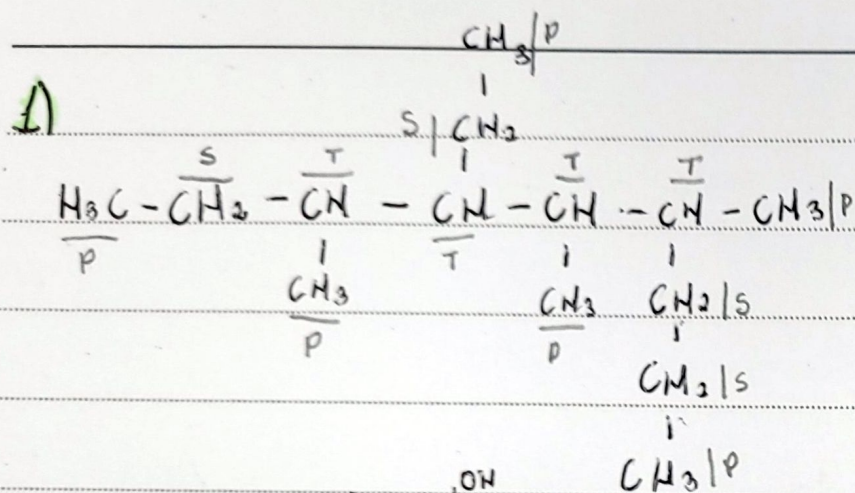 CH3|P
1)
S|CH2
S T T T
H3C - CH2 - CH - CH - CH - CH - CH3|P
P T
CH3 CH3 CH2|S
P P
CH2|S
,OH CH3|P